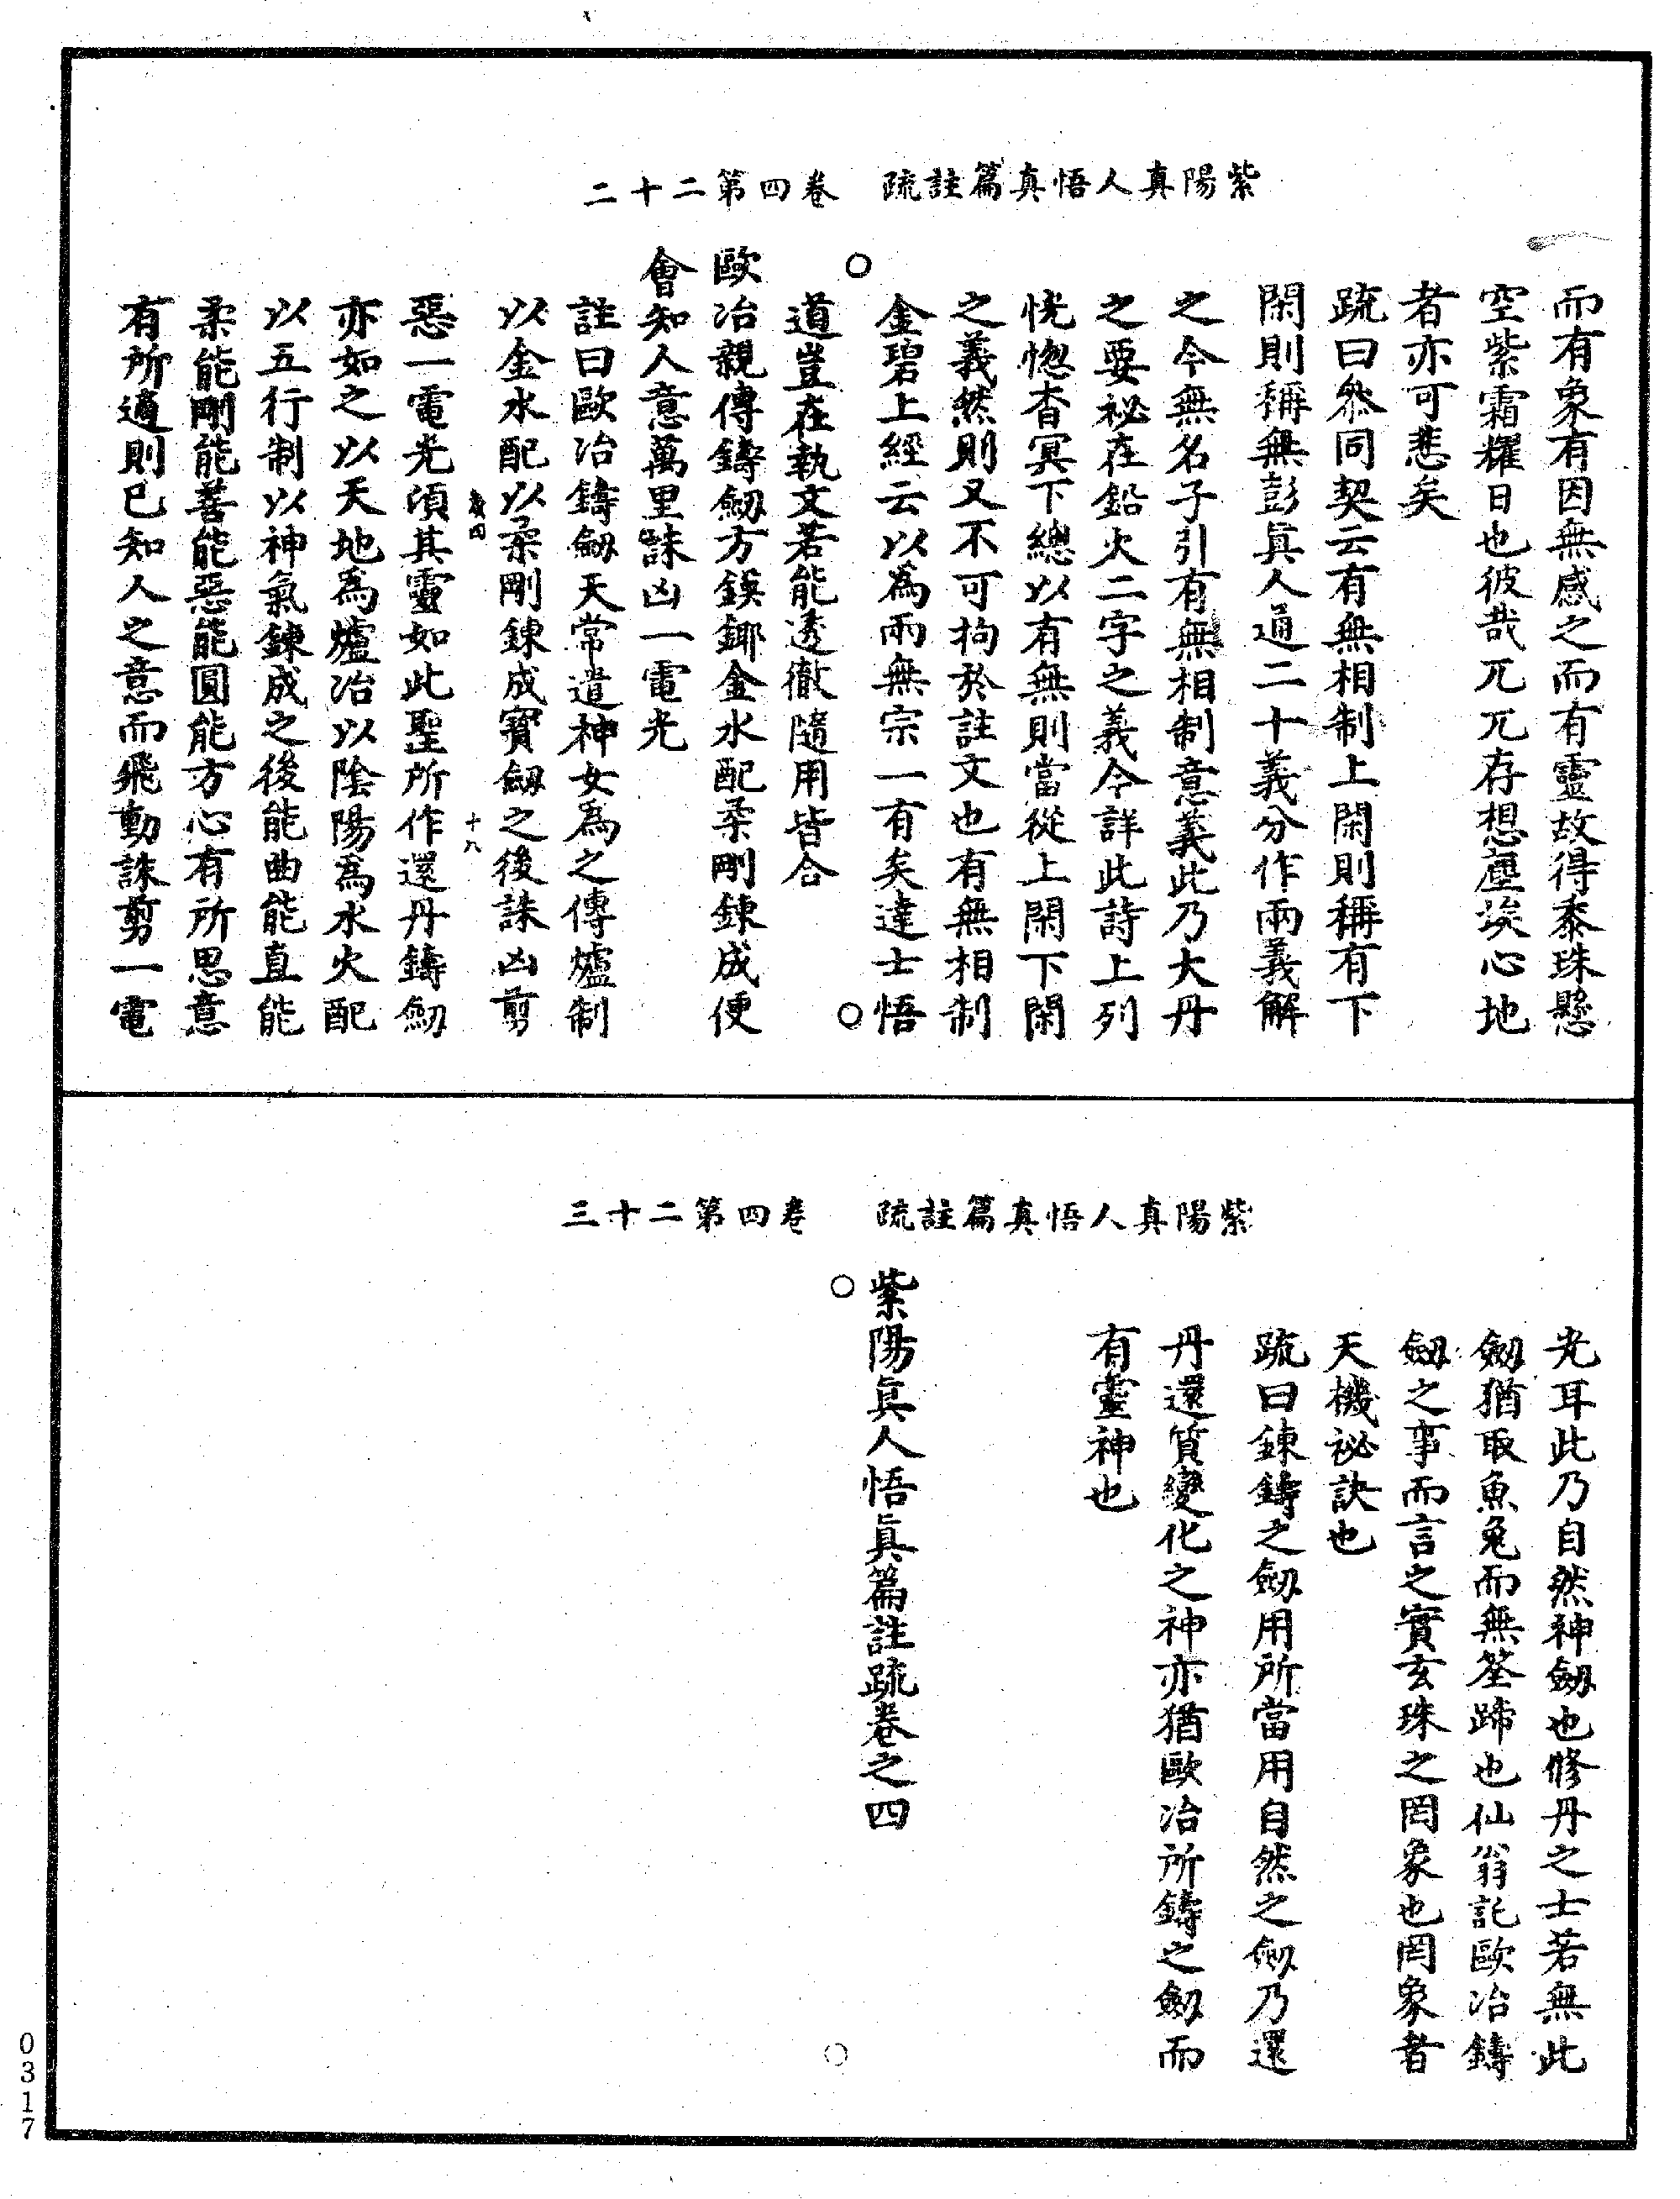 紫陽真人悟真篇註疏　卷四第二十二
而有象有因無感之而有靈故得黍珠懸
空紫霜耀日也彼哉兀兀存想塵埃心地
者亦可悲矣
疏曰叅同契云有無相制上閑則稱有下
閑則稱無彭眞人通二十義分作兩義解
之今無名子引有無相制意義此乃大丹
之要祕在鉛火二字之義今詳此詩上列
恍惚杳冥下總以有無則當從上閑下閑
之義然則又不可拘於註文也有無相制
金碧上經云以為兩無宗一有矣達士悟
道豈在執文若能透徹隨用皆合
歐冶親傳鑄劒方鏌鎁金水配柔剛鍊成便
會知人意萬里誅凶一電光
註曰歐冶鑄劒天常遣神女為之傳爐制
以金水配以柔剛鍊成寶劒之後誅凶剪
十八
惡一電光頃其靈如此聖所作還丹鑄劒
亦如之以天地為爐冶以陰陽為水火配
以五行制以神氣鍊成之後能曲能直能
柔能剛能善能惡能圓能方心有所思意
有所適則已知人之意而飛動誅剪一電
紫陽真人悟真篇註疏　卷四第二十三
光耳此乃自然神劒也修丹之士若無此
劒猶取魚兔而無筌蹄也仙翁託歐冶鑄
劒之事而言之實玄珠之罔象也罔象者
天機祕訣也
疏曰鍊鑄之劒用所當用自然之劒乃還
丹還質變化之神亦猶歐冶所鑄之劒而
有靈神也
紫陽眞人悟眞篇註疏卷之四
0317